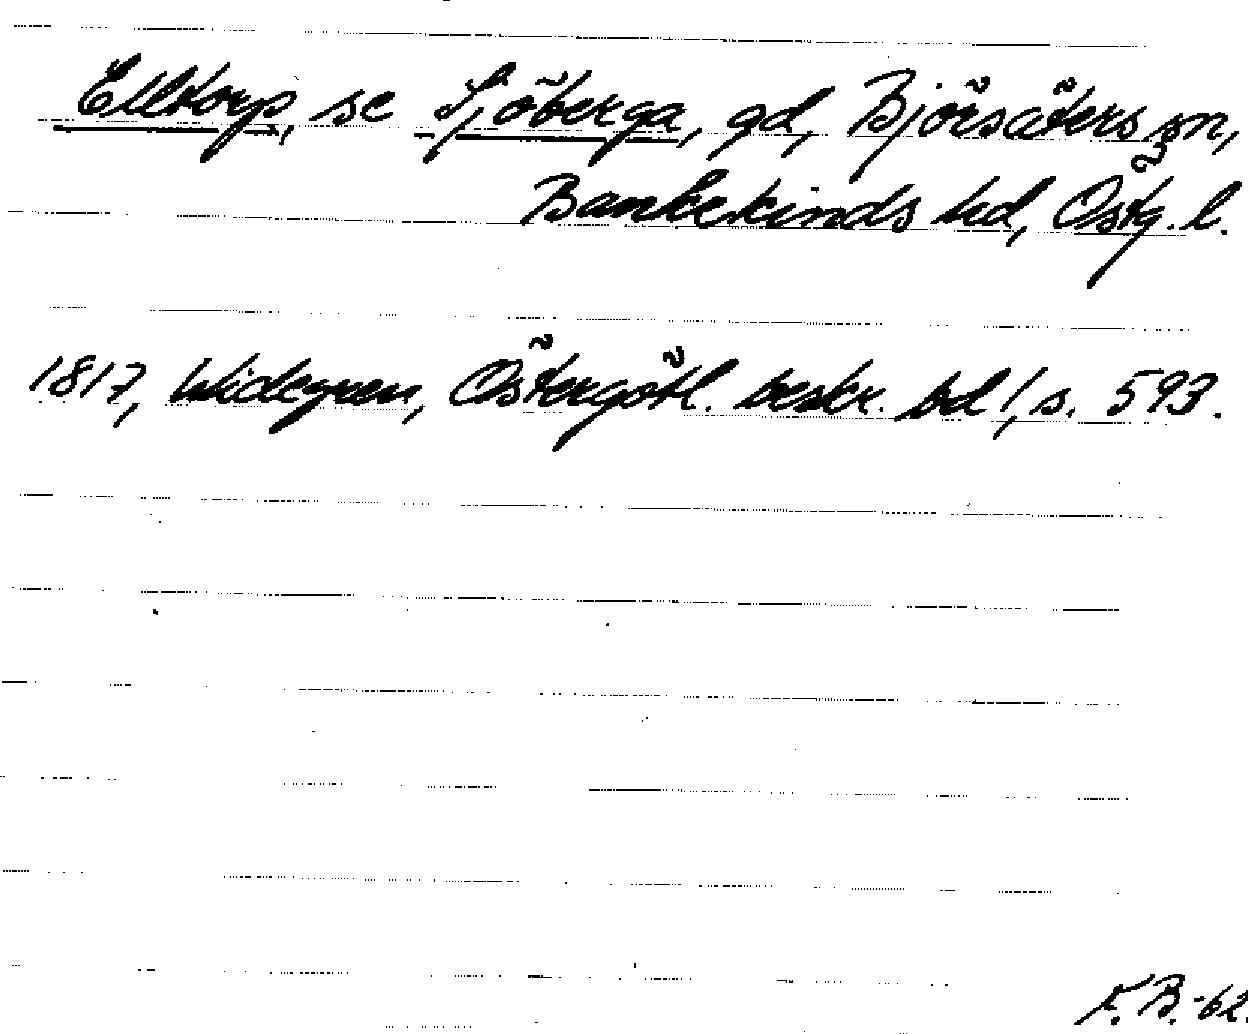 Elltorp, se Sjöberga, gd, Björsäters sn,
Bankekinds hd, Östg. l.
1817, Widegren, Östergötl. beskr. bd 1, s. 593.
F. B. -62.